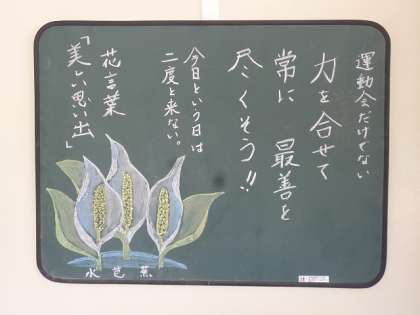 運動会だけでない
力を合せて
常に 最善を
尽くそう!!
今日という日は
二度と来ない。
花言葉
「美しい思い出」
水芭蕉